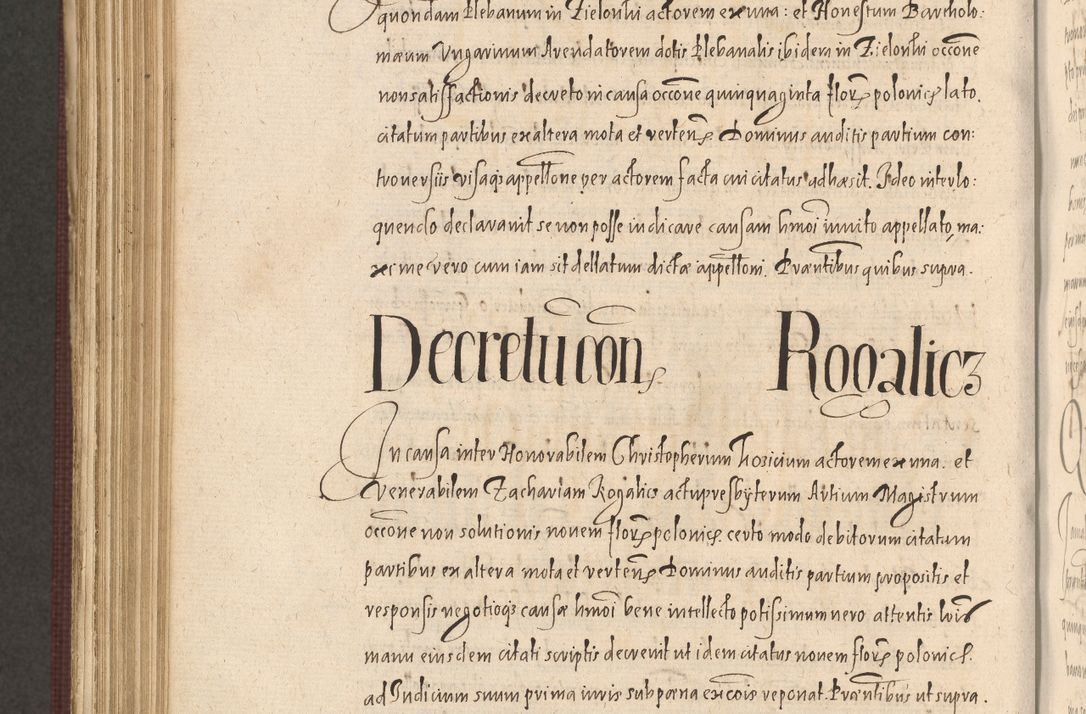 quondam Plebanum in Zielonki actorem ex una: et Honestum Bartholo:
mæum Ungarinum Arendatorem dotis Plebanalis ibidem in Zielonki occõne
non satisfactionis decreto in causa occõne quinquaginta florȩ polonicȩ lato.
citatum partibus ex altera mota et vertenȩ Dominus auditis partium con:
troversiis visaqȝ appellõne per actorem facta cui citatus adhæsit. Ideo interlo:
quendo declaravit se non posse iudicare causam hmõi invito appellato, ma:
xime vero cum iam sit dellatum dictæ appellõni. Præntibus quibus supra.
Decretũ con̄ȩ Rogalicz
In causa inter Honorabilem Christopherum actorem ex una. et
Venerabilem Zachariam Rogalicz actu presbyterum Artium Magistrum
occõne non solutionis novem florȩ polonicȩ. certo modo debitorum citatum
partibus ex altera mota et vertenȩ Dominus auditis partium propositis et
responsis negotioqȝ causæ hmõi bene intellecto potissimum vero attentis
manu eiusdem citati scriptis decrevit ut idem citatus novem florȩ polonicȩ.
ad Iudicium suum prima iuris sub pœna excõis reponat. Præntibus ut supra.